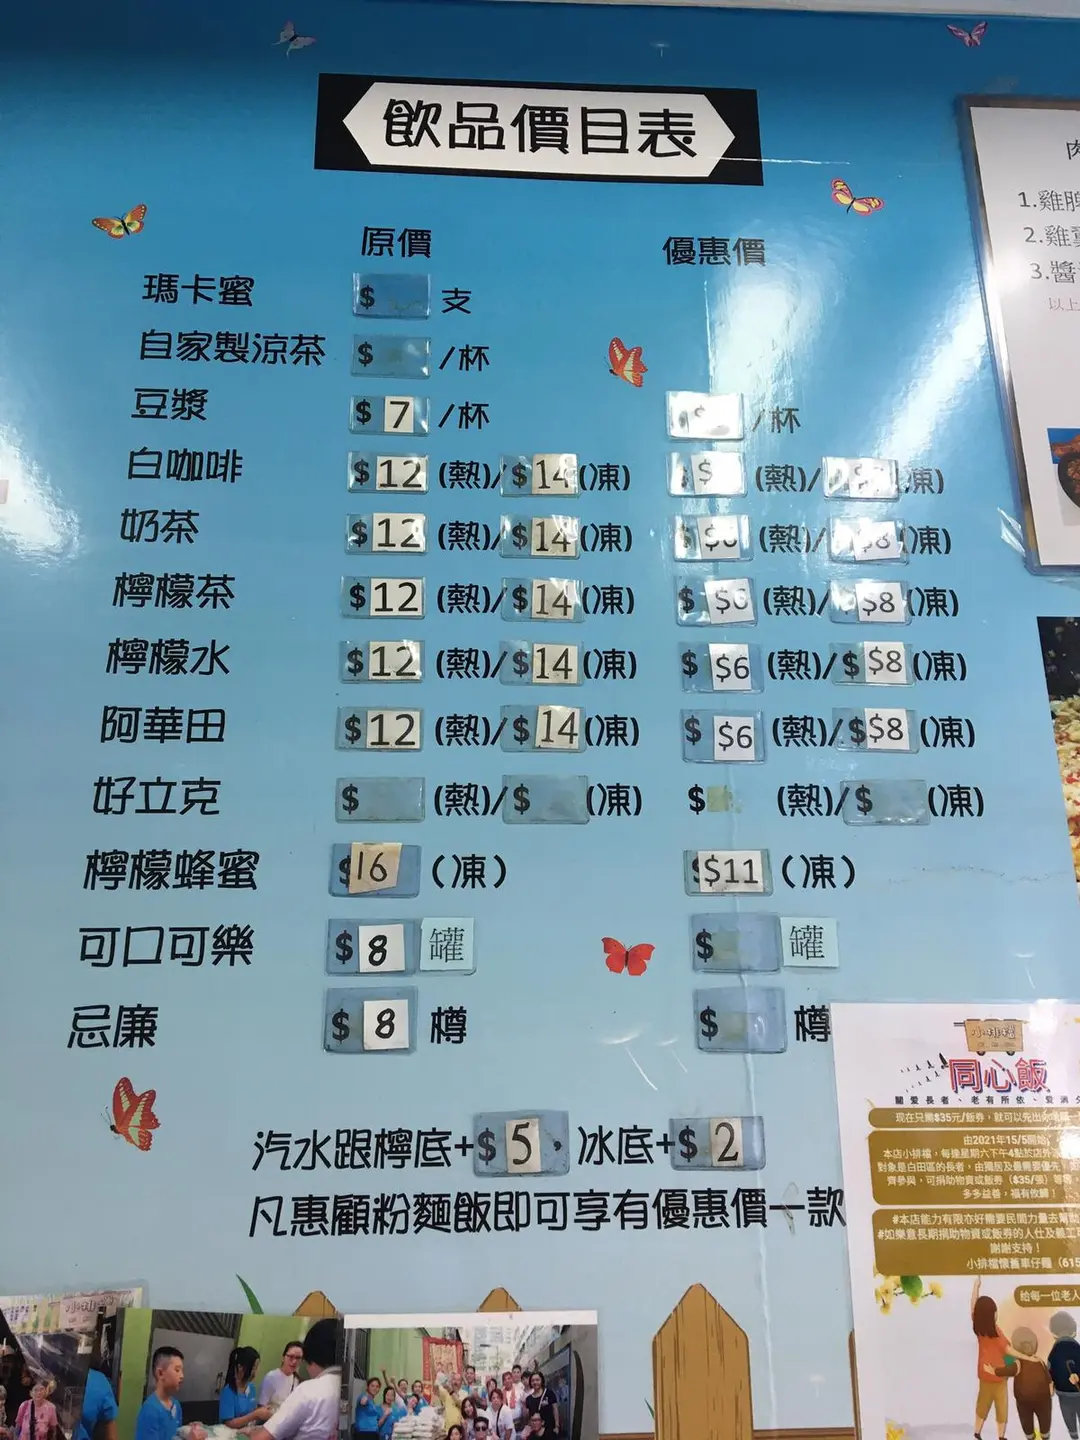 飲品價目表
原價 優惠價
瑪卡蜜 $ 支
自家製涼茶 $ /杯
豆漿 $7 /杯 $ /杯
白咖啡 $12 (熱)/$14(凍) $ (熱)/ (凍)
奶茶 $12 (熱)/$14(凍) $6 (熱)/$8 (凍)
檸檬茶 $12 (熱)/$14(凍) $ $6 (熱)/ $8 (凍)
檸檬水 $12 (熱)/$14(凍) $ $6 (熱)/$ $8 (凍)
阿華田 $12 (熱)/$14(凍) $ $6 (熱)/$ $8 (凍)
好立克 $ (熱)/$ (凍) $ (熱)/$ (凍)
檸檬蜂蜜 $16 (凍) $ $11 (凍)
可口可樂 $8 罐 $ 罐
忌廉 $8 樽 $ 樽
汽水跟檸底+$5,冰底+$2
凡惠顧粉麵飯即可享有優惠價一款
肉
1.雞髀
2.雞
3.醬
以上
小排檔
同心飯
關愛長者、老有所依、愛滿
現在只需$35元/飯券,就可以先出
由2021年15/5開始
本店小排檔,每逢星期六下午4點於店外
對象是白田區的長者,由獨居及最需要優先,
齊參與,可捐助物資或飯券($35/張)
多多益善,福有攸歸!
#本店能力有限亦好需要民間力量去
#如樂意長期捐助物資或飯券的人仕及義工
謝謝支持!
小排檔懷舊車仔麵(615
給每一位老人